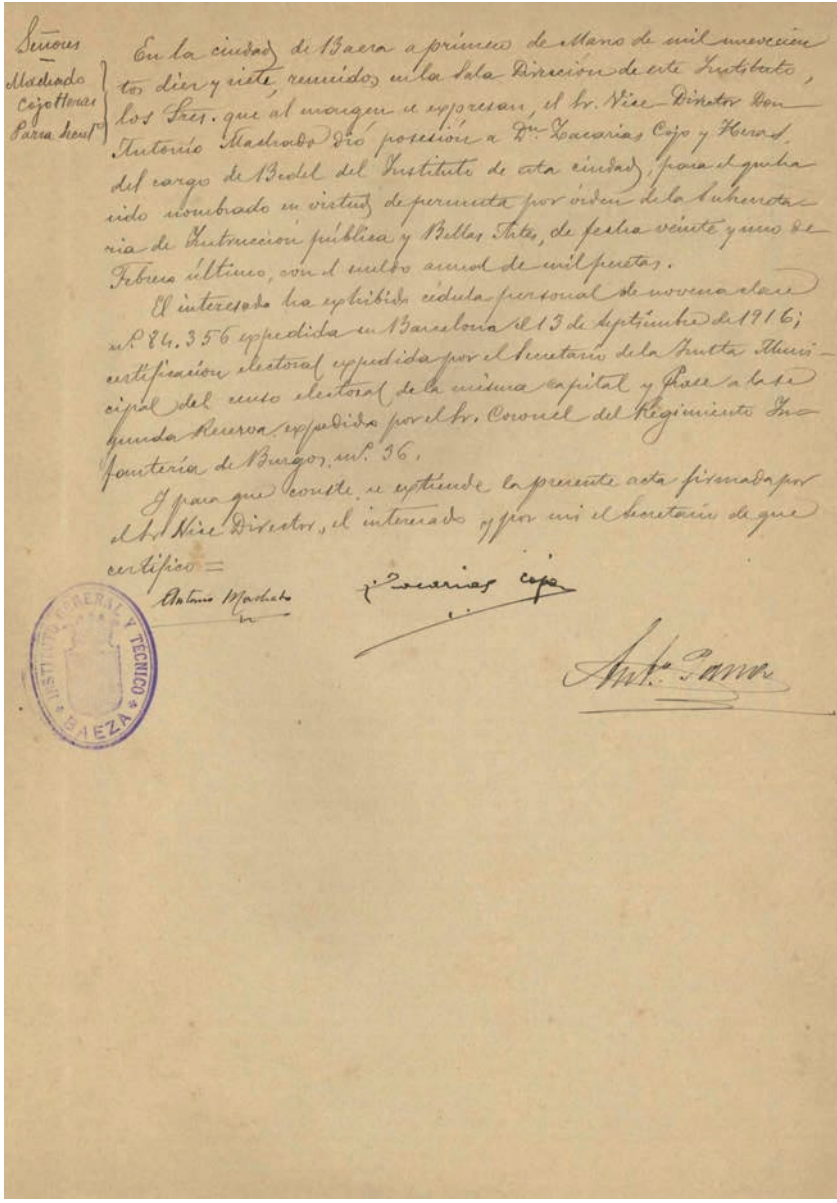 Señores
Machado
Cojo Heras
Parra Secretº
En la ciudad de Baeza a primero de Marzo de mil novecien
tos diez y siete, reunidos en la Sala Direccion de este Instituto,
los Sres. que al margen se expresan, el Sr. Vice-Director Don
Antonio Machado dió posesión a Dn. Zacarias Cojo y Heras,
del cargo de Bedel del Instituto de esta ciudad, para el que ha
sido nombrado en virtud de permuta por órden de la Subsecreta-
ria de Instrucción pública y Bellas Artes, de fecha veinte y uno de
Febrero último, con el sueldo anual de mil pesetas.
El interesado ha exhibido cédula personal de novena clase
nº. 84.356 expedida en Barcelona el 13 de Septiembre de 1916;
certificación electoral expedida por el Secretario de la Junta Muni-
cipal del censo electoral de la misma capital y Pase a la se
gunda Reserva expedida por el Sr. Coronel del Regimiento In-
fantería de Burgos, nº. 36.
Y para que conste se extiende la presente acta firmada por
el Sr Vice Director, el interesado y por mi el Secretario de que
certifico =
Antonio Machado
Zacarias Cojo
Antº. Parra
INSTITUTO GENERAL Y TÉCNICO
* BAEZA *